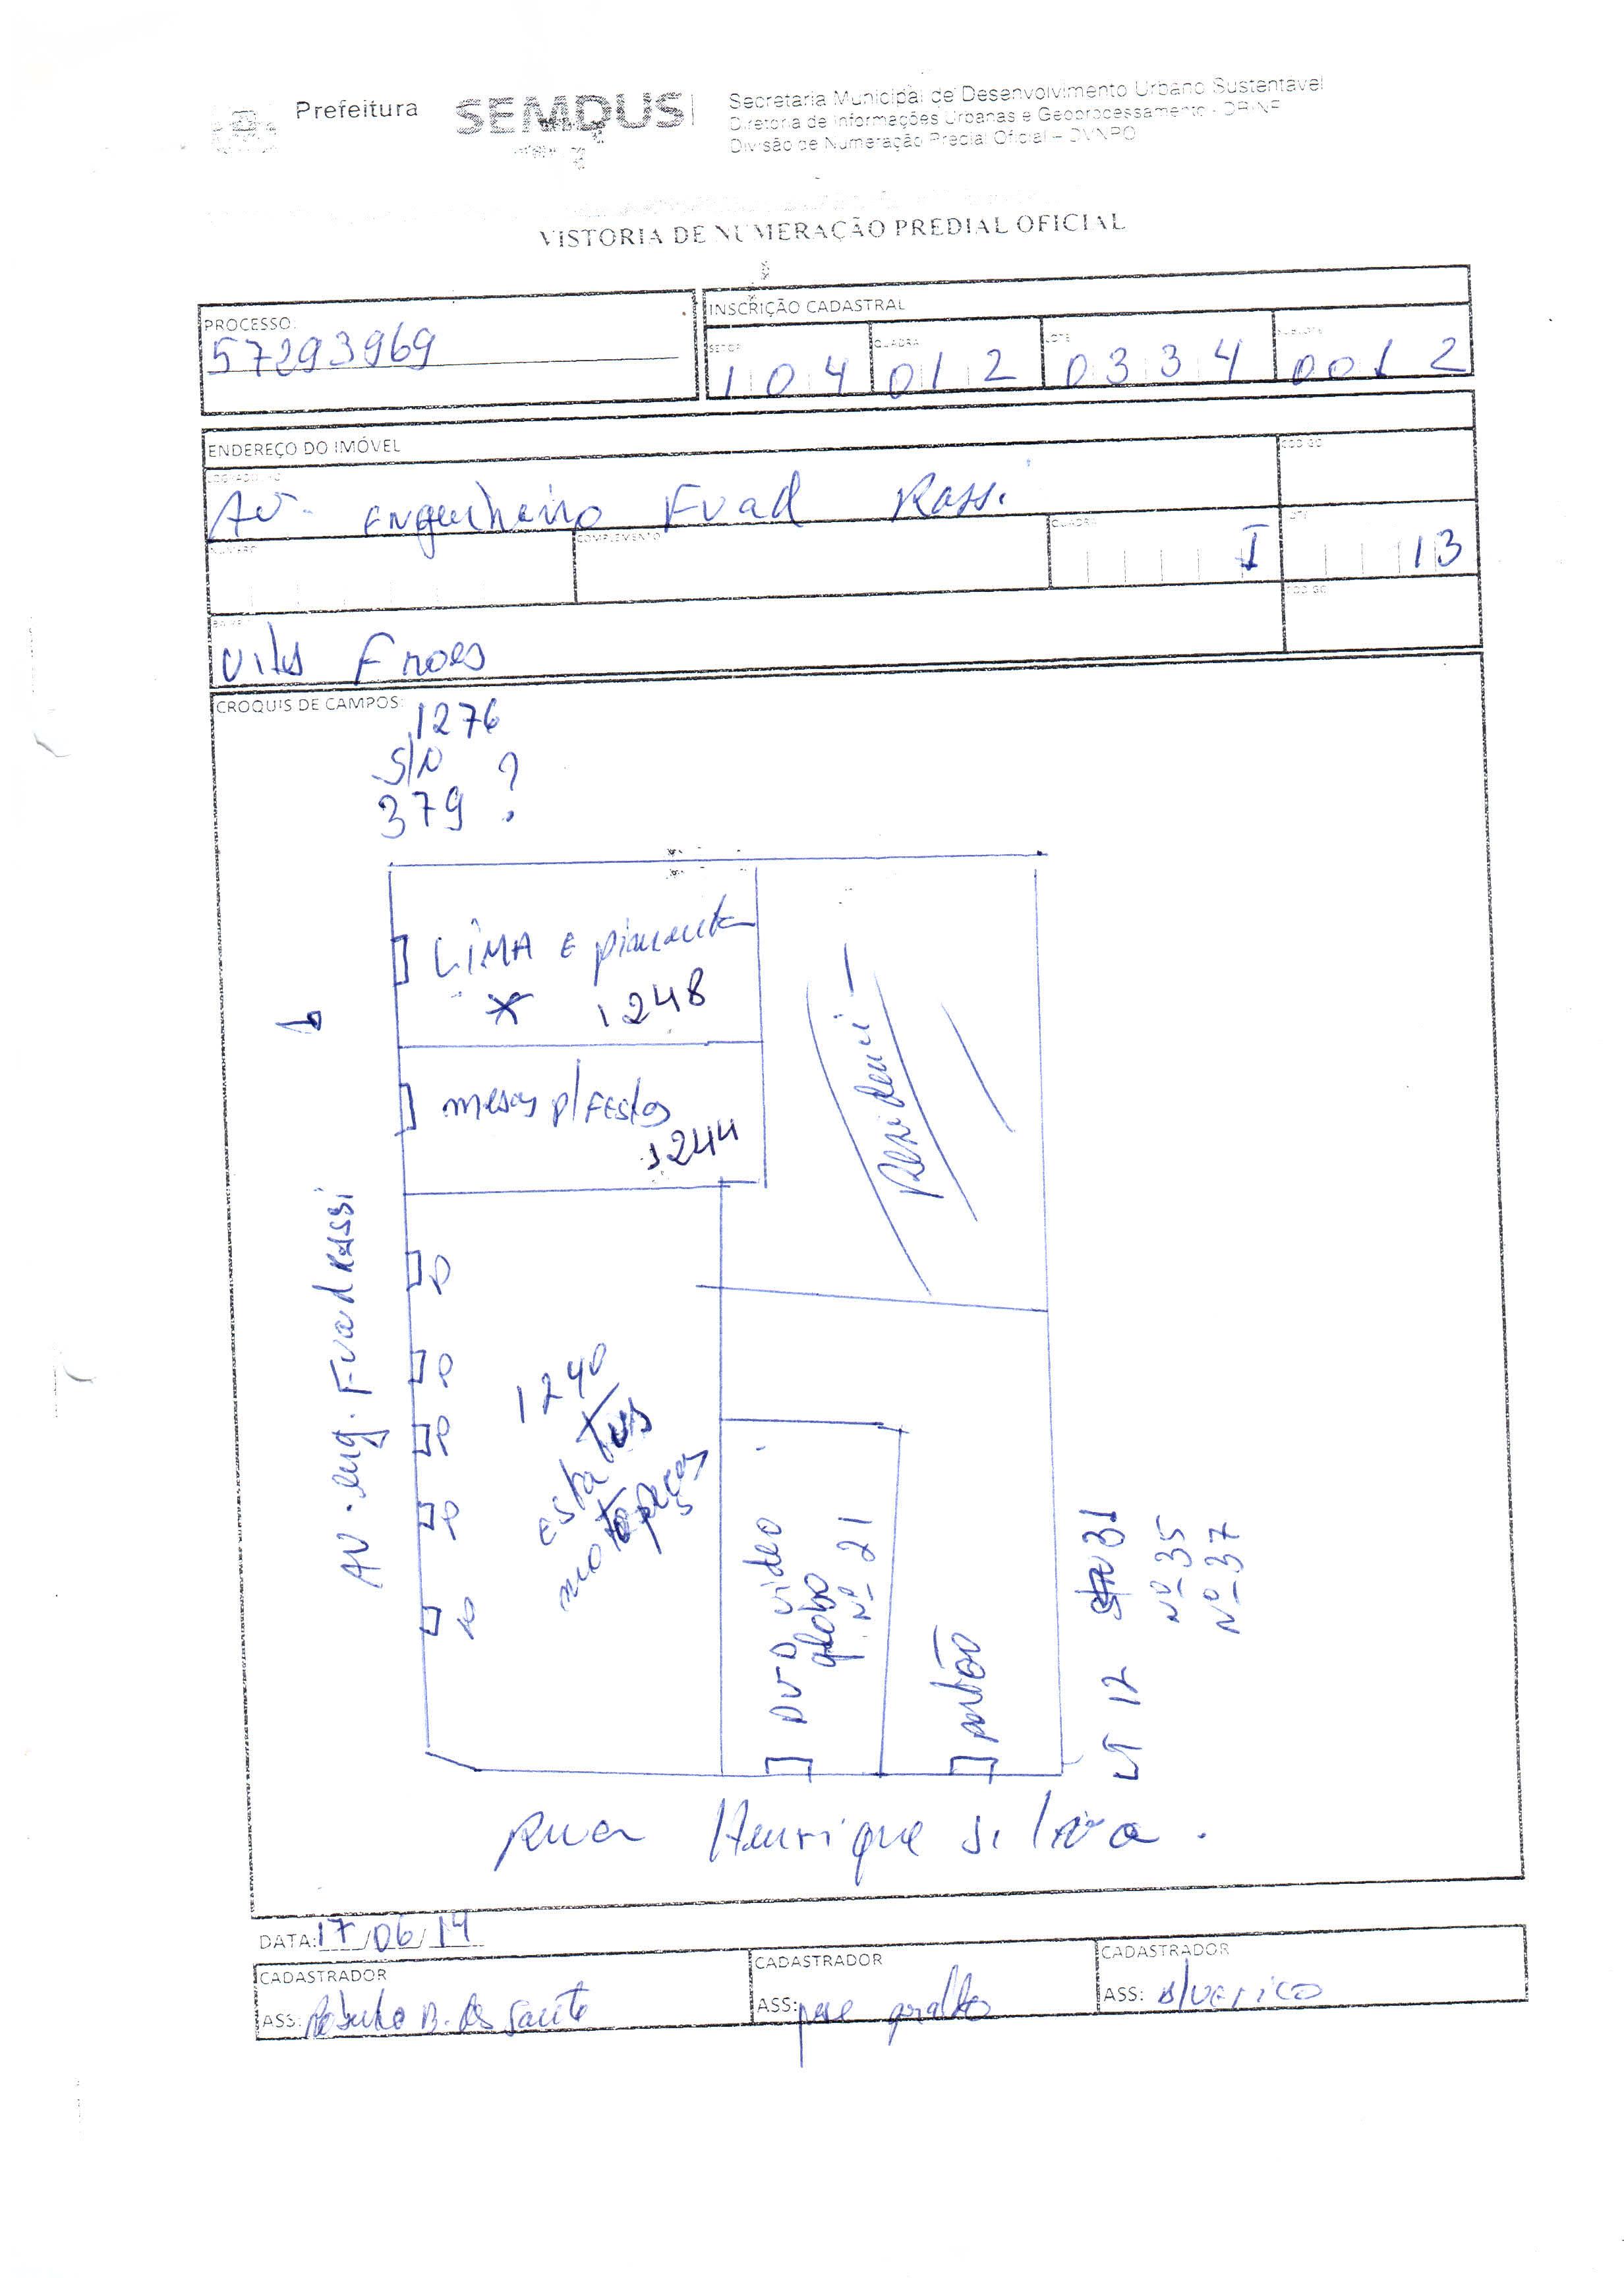 Prefeitura
SEMDUS
Secretaria Municipal de Desenvolvimento Urbano Sustentável
Diretoria de Informações Urbanas e Geoprocessamento - DRINF
Divisão de Numeração Predial Oficial – DVNPO
VISTORIA DE NUMERAÇÃO PREDIAL OFICIAL
PROCESSO:
57293969
INSCRIÇÃO CADASTRAL
SETOR
QUADRA
LOTE
SUBLOTE
104 012 0334 0012
ENDEREÇO DO IMÓVEL
LOGRADOURO
CÓDIGO
Av. Engenheiro Fuad Rassi
NÚMERO
COMPLEMENTO
QUADRA
LOTE
I
13
BAIRRO
CÓDIGO
Vila Froes
CROQUIS DE CAMPOS:
1276
S/N
379 ?
LIMA E pimenta
* 1248
mesas p/ FESTAS
1244
Residenci
AV. eng. Fuad Rassi
1240
moto peças
DVD video
globo
Nº 21
portão
LT 12
31
Nº 35
Nº 37
Rua Henrique Silva.
DATA: 17/06/14
CADASTRADOR
CADASTRADOR
CADASTRADOR
ASS:
ASS: jose geraldo
ASS: